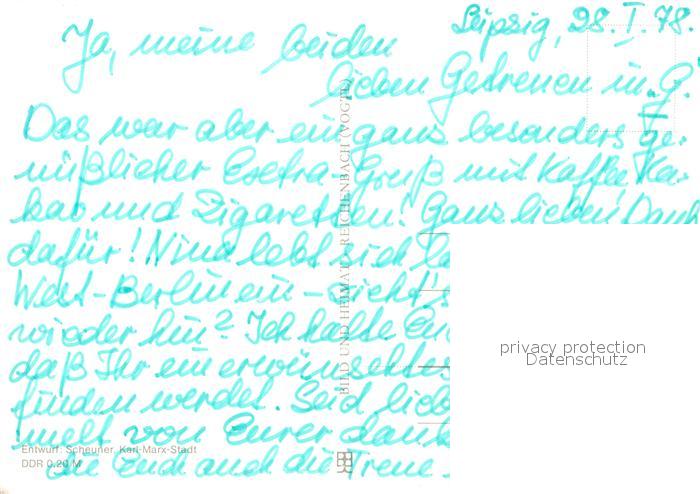 Leipzig, 28. I. 78.
Ja, meine beiden
lieben Getreuen in G.!
Das war aber ein ganz besonders ge-
nüßlicher Extra-Gruß mit Kaffee, Ka-
kao und Zigaretten! Ganz lieben Dank
dafür! Nina lebt sich
West-Berlin ein -
wieder hin? Ich halte
daß Ihr ein erwünschtes
finden werdet. Seid
von Eurer
die Euch auch die Treue
BILD UND HEIMAT REICHENBACH (VOGTL)
Entwurf: Scheuner, Karl-Marx-Stadt
DDR 0.20 M
privacy protection
Datenschutz